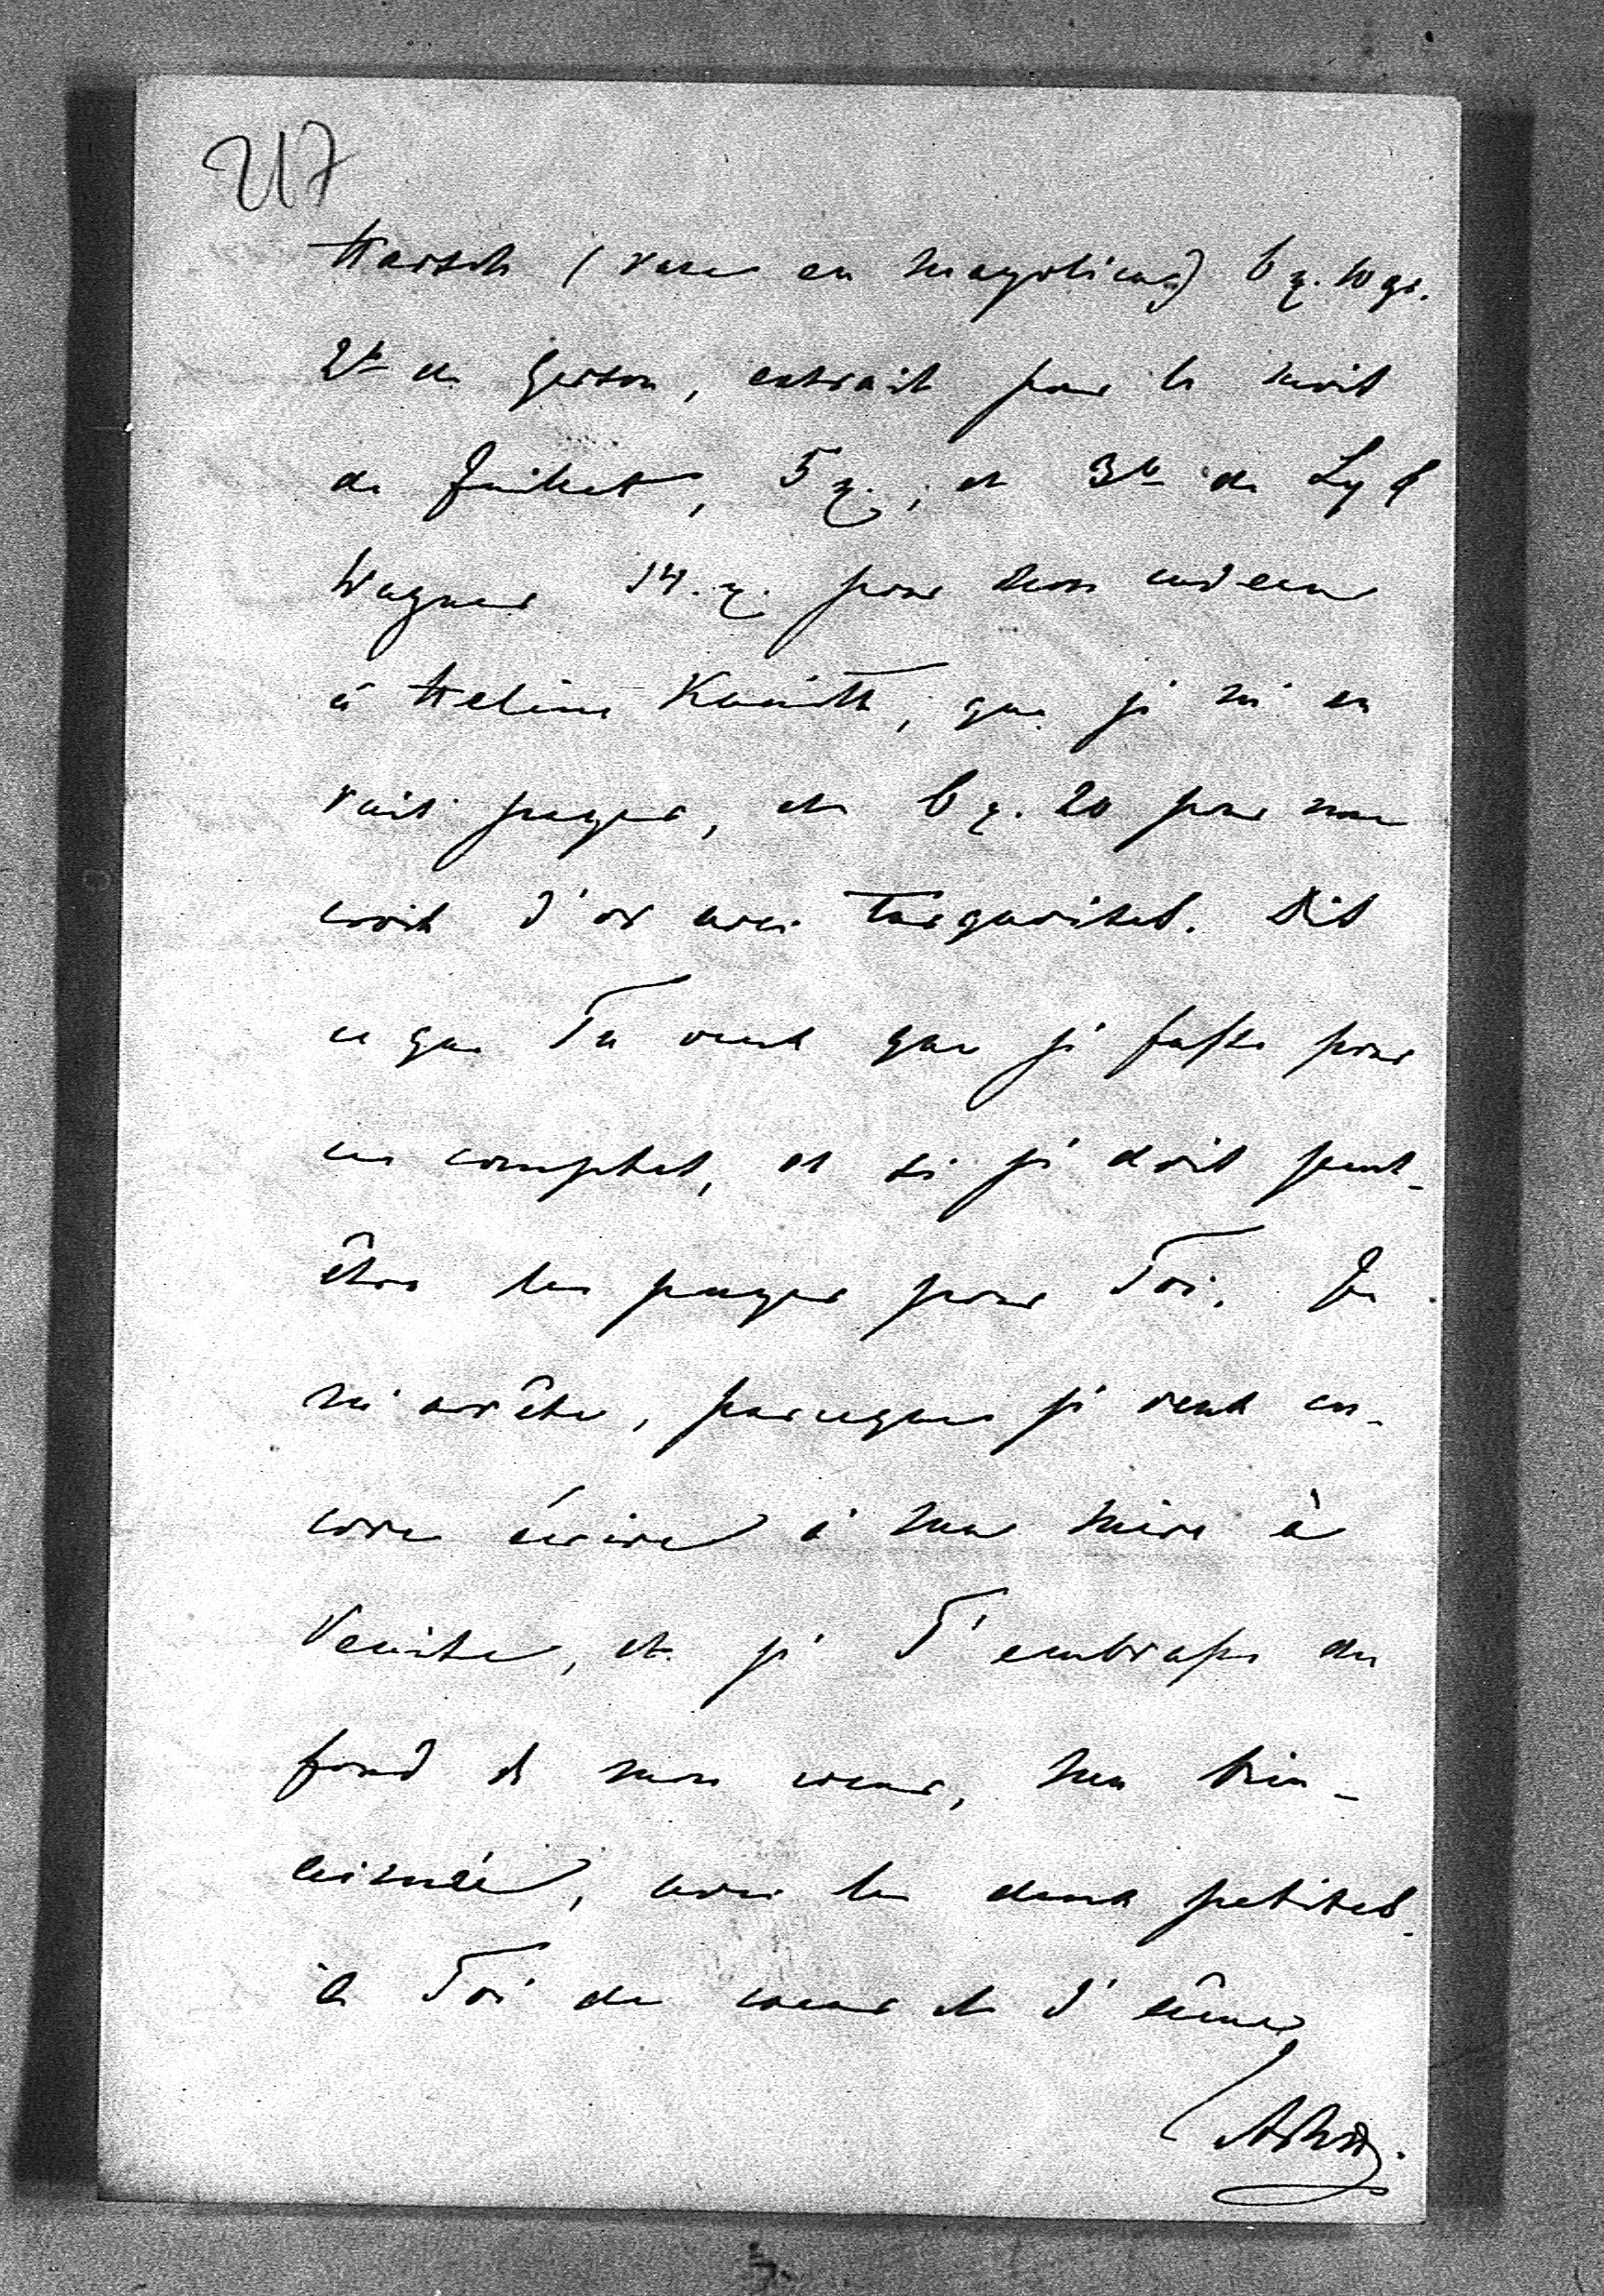 217
Harsch (vase en mayolica) 6 r. 10 gr.
2t de Gerson, extrait pour le mois
de Juillet, 5 r.; et 3t de Ly &
Wagner 14. r. pour mon cadeau
à Helène Kanitz, que je m'en
vais payer, et 6 r. 20 pour une
croix d'or avec turquoises. Dis
ce que Tu veux que je fasse pour
ces comptes, et si je dois peut-
être les payer pour Toi. Je
m'arrête, parceque je veux en-
core écrire à ma mère à
Venise, et je T'embrasse du
fond de mon coeur, ma bien-
aimée, avec les deux petites
à Toi de coeur et d'âme